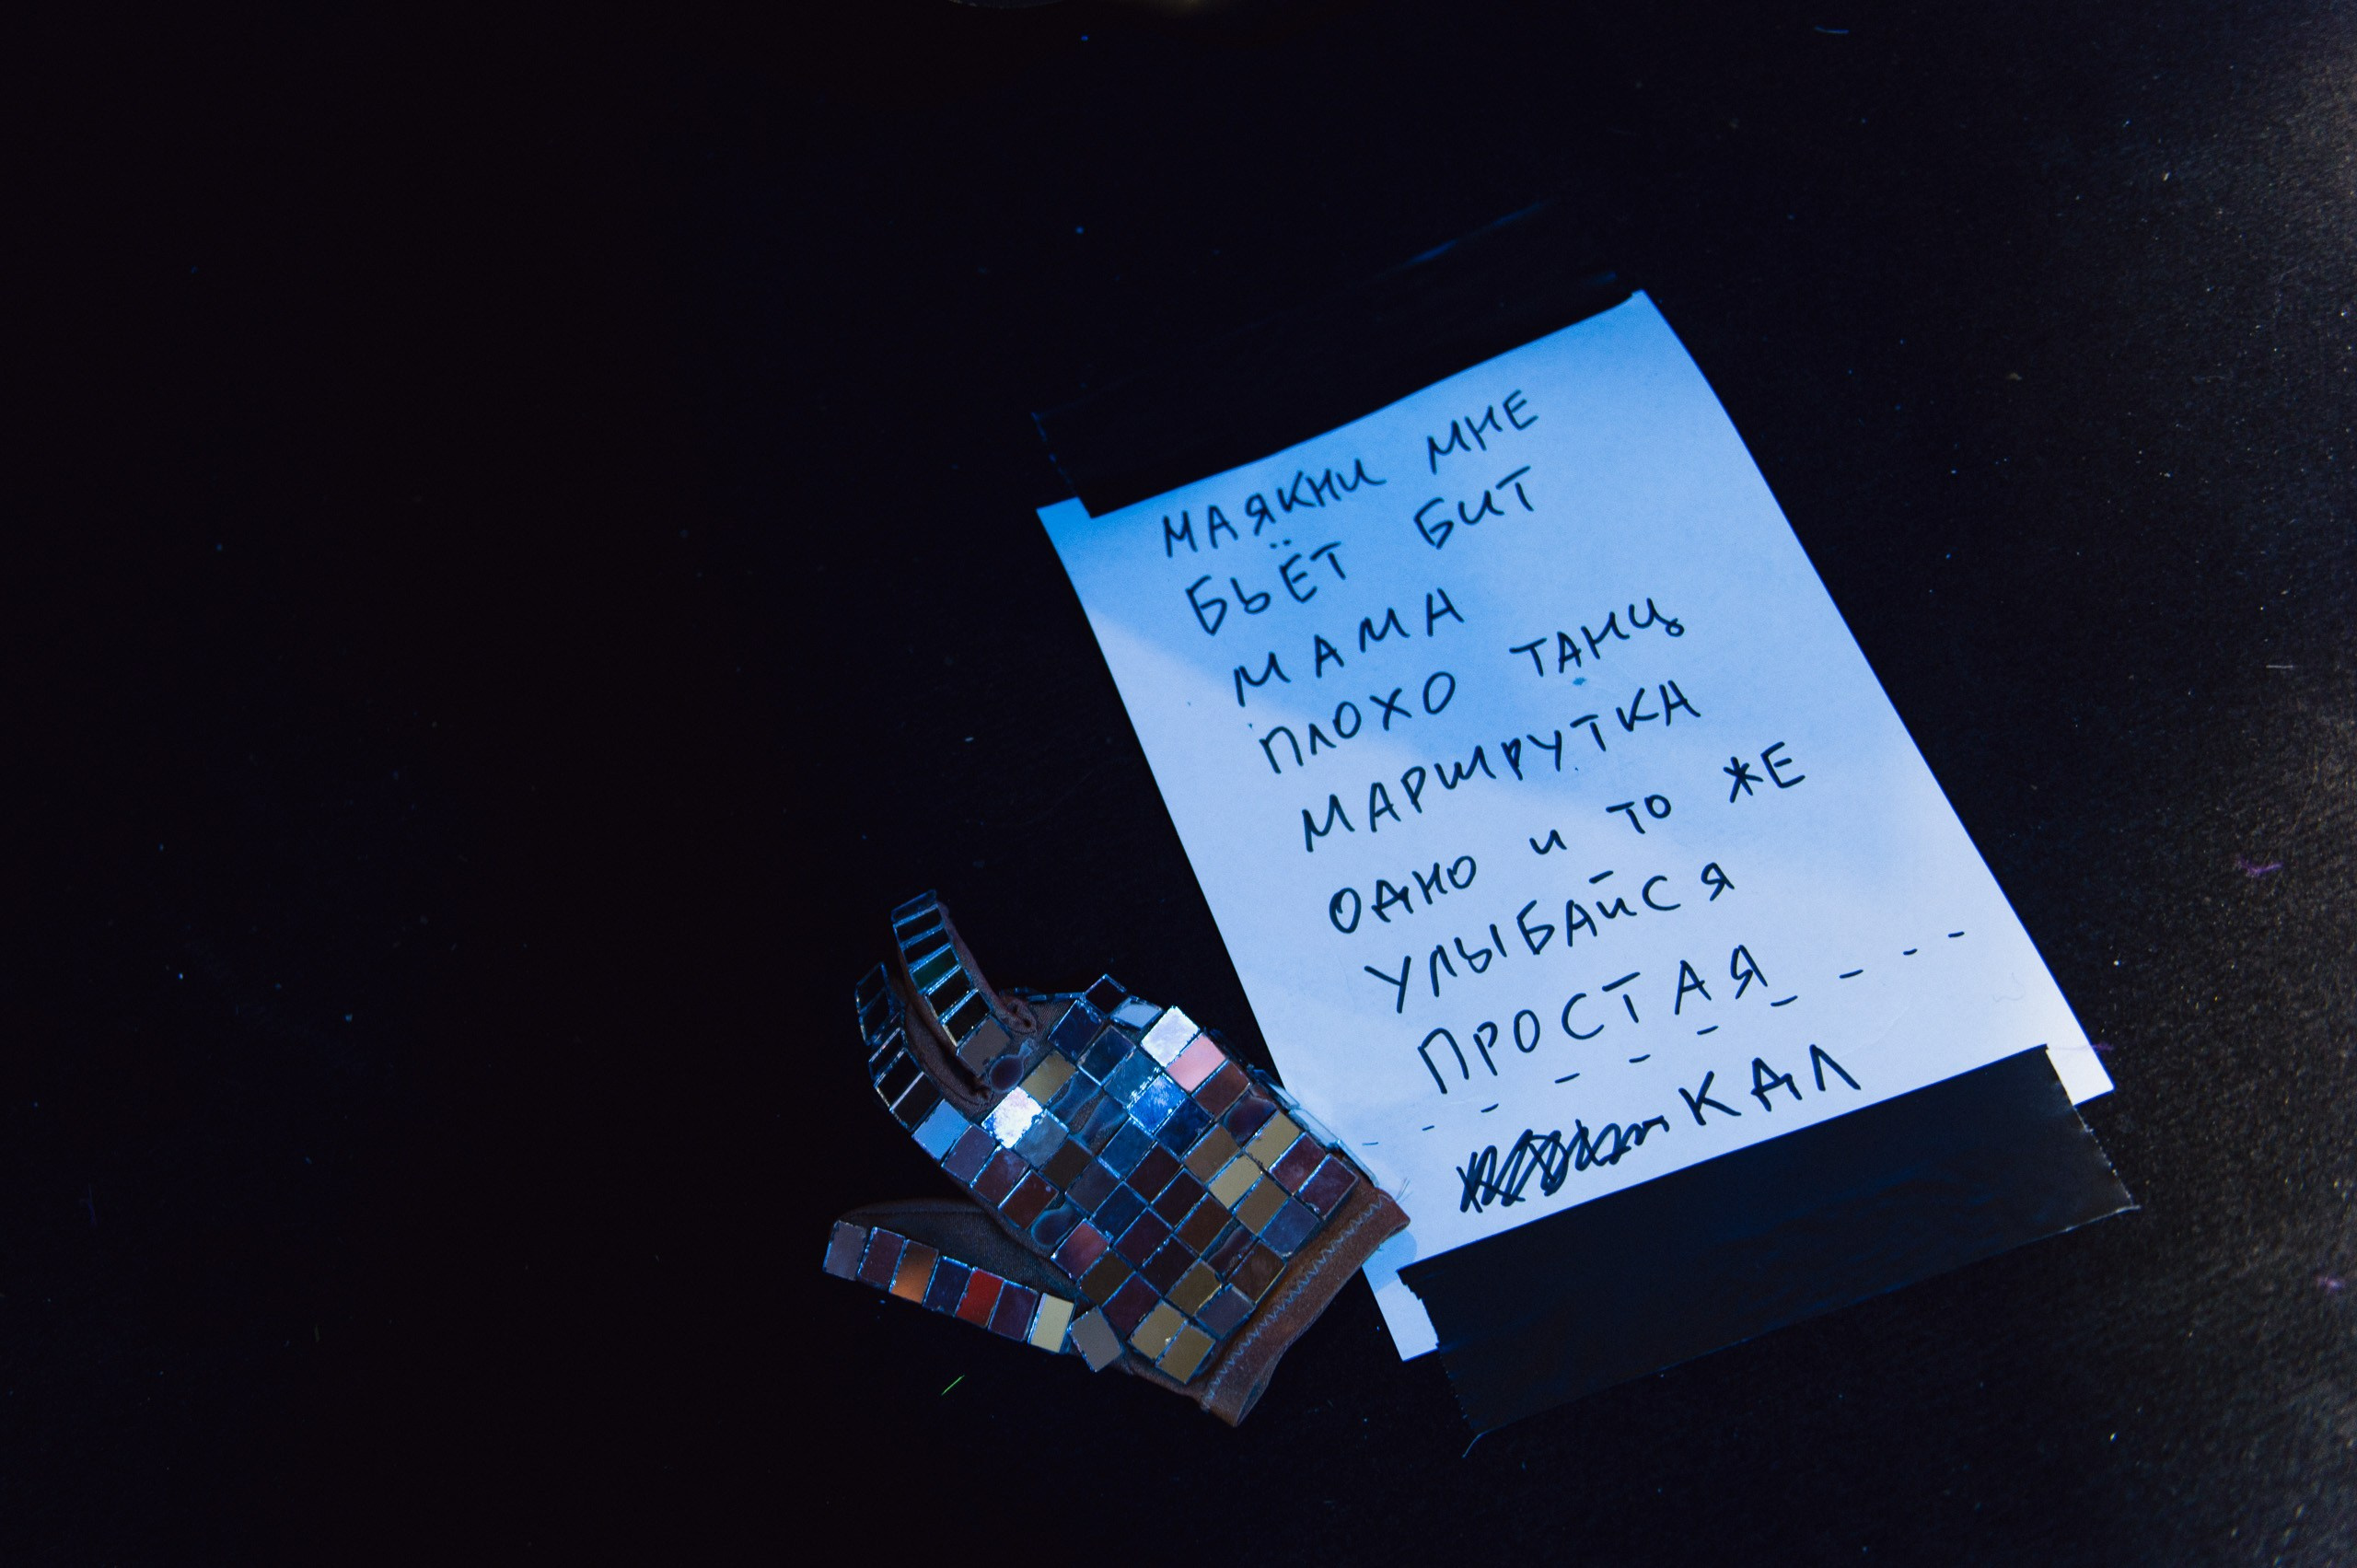 МАЯКНИ МНЕ
БЬЁТ БИТ
МАМА
ПЛОХО ТАНЦ
МАРШРУТКА
ОДНО И ТО ЖЕ
УЛЫБАЙСЯ
ПРОСТАЯ
КАЛ